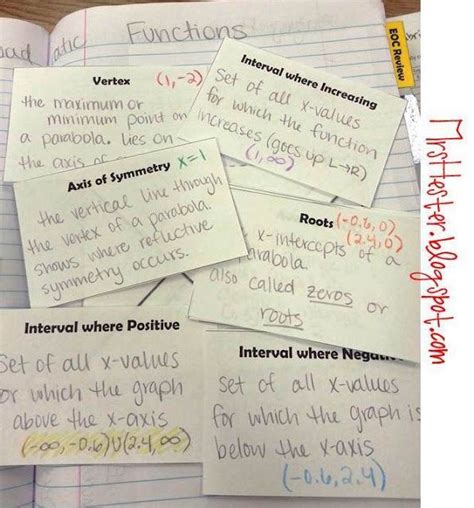 Functions
atic
EOC Review
Vertex (1,-2)
the maximum or
minimum point on
a parabola. lies on
the axis of
Interval where Increasing
Set of all x-values
for which the function
increases (goes up L→R)
(1,∞)
Axis of Symmetry x=1
the vertical line through
the vertex of a parabola.
shows where reflective
symmetry occurs.
Roots (-0.6,0)
(2.4,0)
x-intercepts of a
parabola.
also called zeros or
roots
Interval where Positive
Set of all x-values
for which the graph
above the x-axis
(-∞,-0.6)U(2.4,∞)
Interval where Negati
Set of all x-values
for which the graph is
below the x-axis
(-0.6,2.4)
MrsHester.blogspot.com